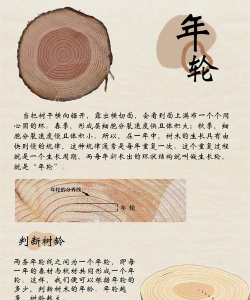 年轮
当把树干横向锯开，露出横切面，会看到面上满布一个个同
心圆的环。春季，形成层细胞分裂速度快且体积大；秋季，细
胞分裂速度慢且体积小。所以，在一年中，树木的生长具有由
快到慢的规律，这种规律通常是每年重复一次。这个重复过程
就是一个生长周期，而每年所长出的环状结构就叫做生长轮，
就是“年轮”。
年轮的分界线
年 轮
判断树龄
两条年轮线之间为一个年轮，即每
一年的春材与秋材共同形成一个年
轮。这样，我们便可以根据年轮的
多少，判断树木的年龄。年轮越
多，树龄越大。